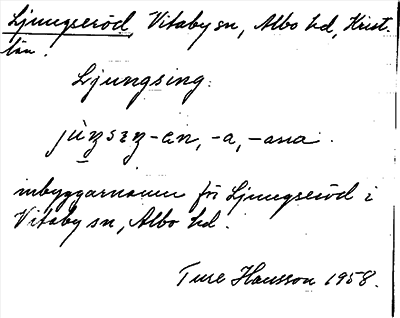 Ljungseröd, Vitaby sn, Albo hd, Krist.
län.
Ljungsing:
jùŋsıŋ-en, -a, -ana.
inbyggarnamn för Ljungseröd i
Vitaby sn, Albo hd.
Ture Hansson 1958.